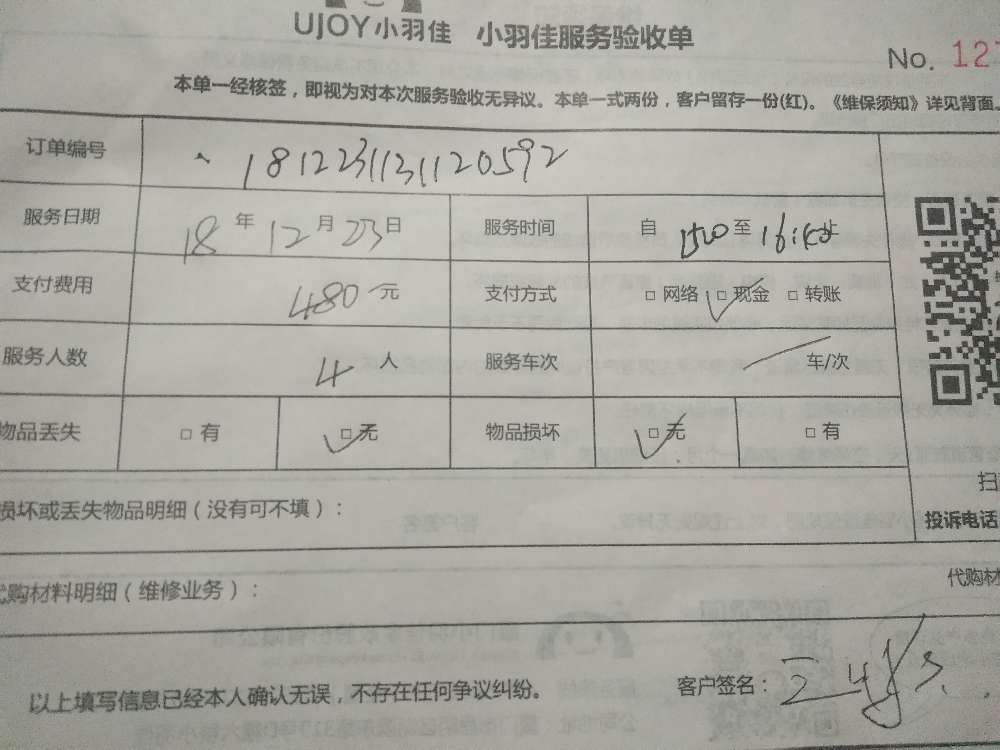 UJOY小羽佳 小羽佳服务验收单
No. 127
本单一经核签，即视为对本次服务验收无异议。本单一式两份，客户留存一份(红)。《维保须知》详见背面。
订单编号 181223113112 0592
服务日期 18 年 12 月 23 日 服务时间 自 1500 至 16:45 止
支付费用 480 元 支付方式 □ 网络 □ 现金 □ 转账
服务人数 4 人 服务车次 车/次
物品丢失 □ 有 □ 无 物品损坏 □ 无 □ 有
扫
损坏或丢失物品明细（没有可不填）： 投诉电话
代购材料明细（维修业务）： 代购材
以上填写信息已经本人确认无误，不存在任何争议纠纷。 客户签名：